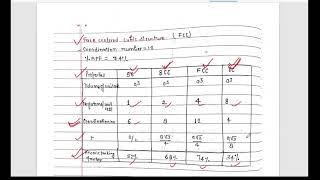 Face centered cubic structure (FCC)
Coordination number = 12
% APF = 74%
Properties SC BCC FCC DC
Volume of unit cell a³ a³ a³ a³
1 2 4 8
Coordination no 6 8 12 4
r a/2 a√3/4 a√2/4 a√3/8
Atomic packing factor 52% 68% 74% 34%